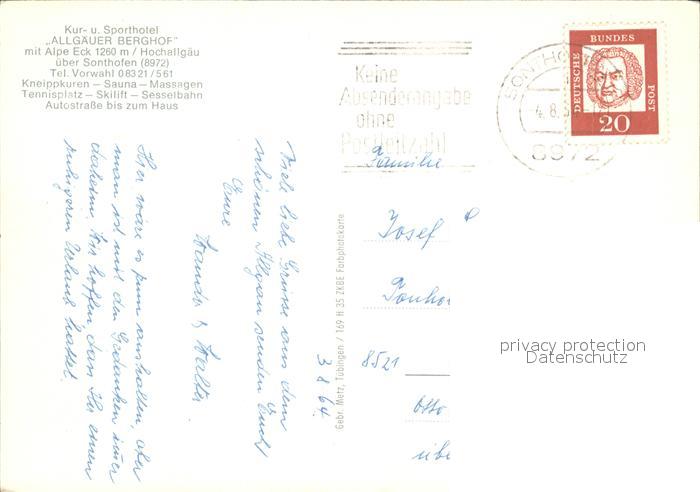 Kur- u. Sporthotel
„ALLGÄUER BERGHOF"
mit Alpe Eck 1260 m / Hochallgäu
über Sonthofen (8972)
Tel. Vorwahl 08321/561
Kneippkuren – Sauna – Massagen
Tennisplatz – Skilift – Sesselbahn
Autostraße bis zum Haus
Keine
Absenderangabe
ohne
Postleitzahl
SONTHO
4. 8. 
8972
DEUTSCHE BUNDES POST
20
Viele liebe Grüsse aus dem
schönen Allgäu senden Euch
Eure
Wanda & Walter
Hier wäre es zum aushalten, aber
man ist mit den Gedanken immer
daheim. Wir hoffen, dass Ihr einen
ruhigeren Urlaub hattet.
3 8 64
Gebr. Metz, Tübingen / 169 H 35 ZKBE Farbphotokarte
Familie
Josef
8521
Otto
übe
privacy protection
Datenschutz